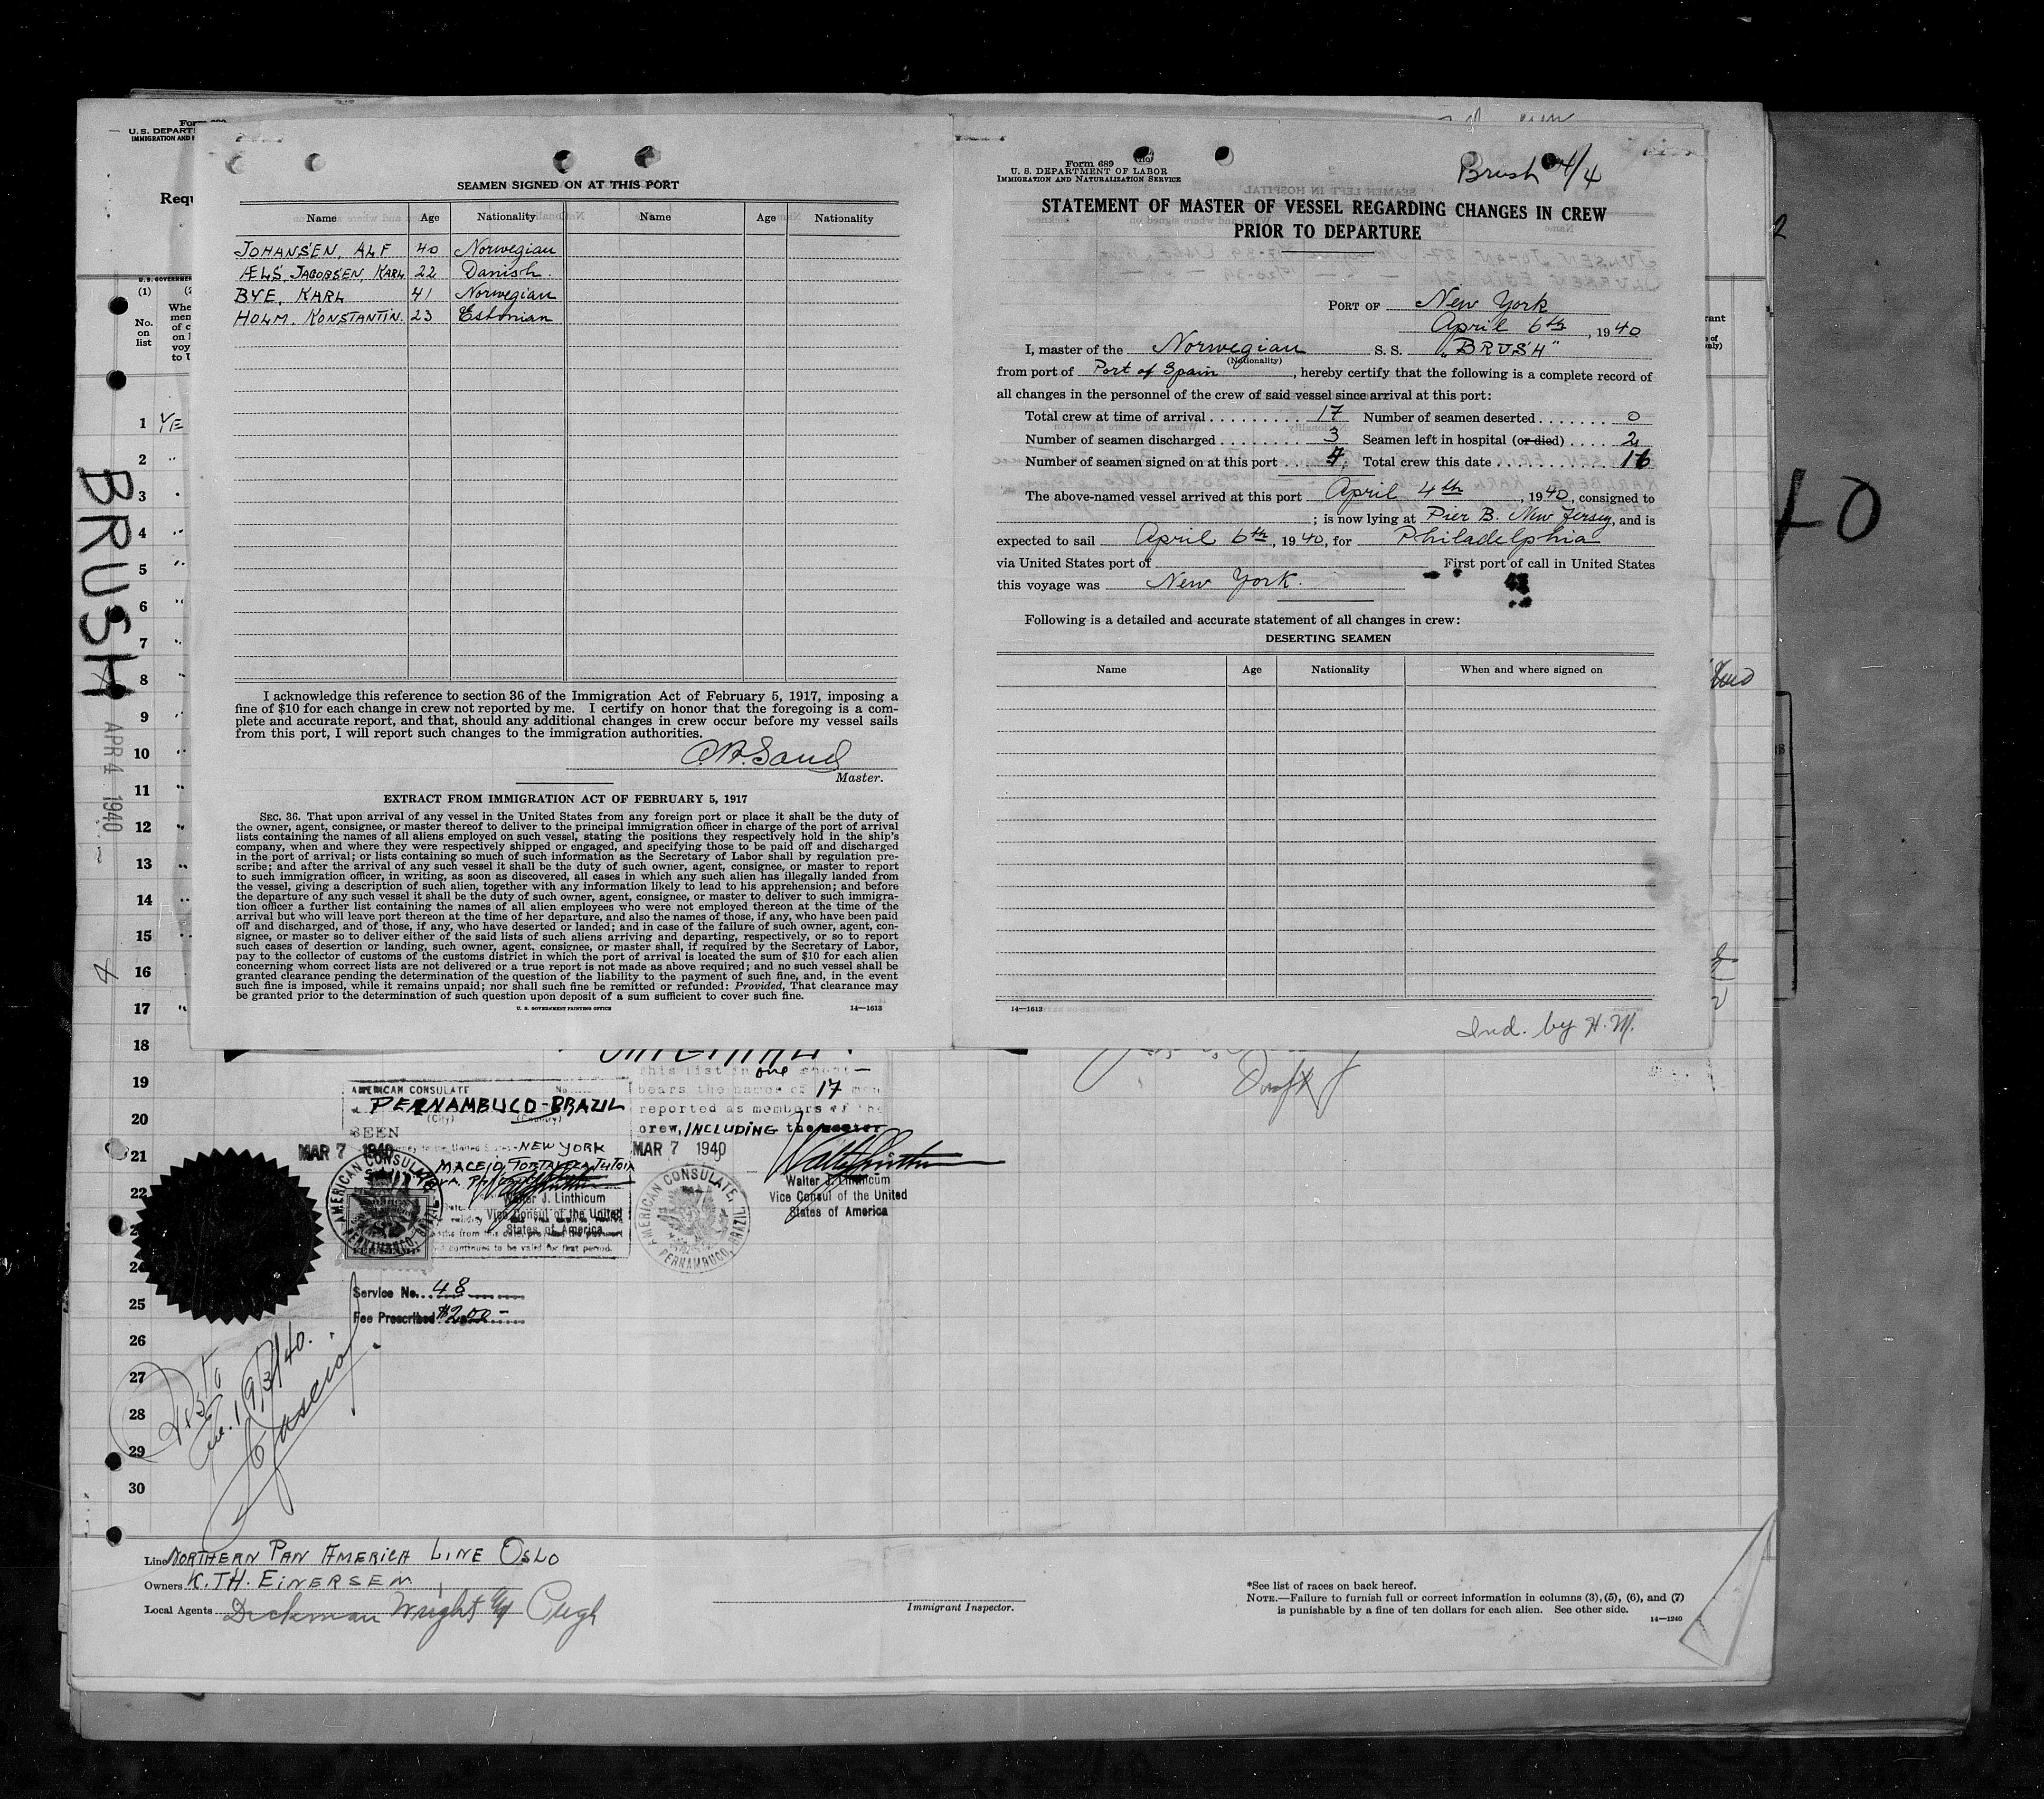 Form 689
U. S. DEPARTMENT OF LABOR
IMMIGRATION AND NATURALIZATION SERVICE
Brush 4/4
STATEMENT OF MASTER OF VESSEL REGARDING CHANGES IN CREW
PRIOR TO DEPARTURE
PORT OF New York
April 6th, 1940
I, master of the Norwegian S. S. "BRUSH"
(Nationality)
from port of Port of Spain, hereby certify that the following is a complete record of
all changes in the personnel of the crew of said vessel since arrival at this port:
Total crew at time of arrival 17 Number of seamen deserted 0
Number of seamen discharged 3 Seamen left in hospital (or died) 2
Number of seamen signed on at this port 4 Total crew this date 16
The above-named vessel arrived at this port April 4th, 1940, consigned to
; is now lying at Pier B. New Jersey, and is
expected to sail April 6th, 1940, for Philadelphia
via United States port of First port of call in United States
this voyage was New York.
Following is a detailed and accurate statement of all changes in crew:
DESERTING SEAMEN
Name Age Nationality When and where signed on
14—1613
Ind. by H. M.
SEAMEN SIGNED ON AT THIS PORT
Name Age Nationality Name Age Nationality
JOHANSEN, ALF 40 Norwegian
ÆLS, JACOBSEN, KARL 22 Danish.
BYE, KARL 41 Norwegian
HOLM, KONSTANTIN. 23 Estonian
I acknowledge this reference to section 36 of the Immigration Act of February 5, 1917, imposing a
fine of $10 for each change in crew not reported by me. I certify on honor that the foregoing is a com-
plete and accurate report, and that, should any additional changes in crew occur before my vessel sails
from this port, I will report such changes to the immigration authorities.
Master.
EXTRACT FROM IMMIGRATION ACT OF FEBRUARY 5, 1917
SEC. 36. That upon arrival of any vessel in the United States from any foreign port or place it shall be the duty of
the owner, agent, consignee, or master thereof to deliver to the principal immigration officer in charge of the port of arrival
lists containing the names of all aliens employed on such vessel, stating the positions they respectively hold in the ship's
company, when and where they were respectively shipped or engaged, and specifying those to be paid off and discharged
in the port of arrival; or lists containing so much of such information as the Secretary of Labor shall by regulation pre-
scribe; and after the arrival of any such vessel it shall be the duty of such owner, agent, consignee, or master to report
to such immigration officer, in writing, as soon as discovered, all cases in which any such alien has illegally landed from
the vessel, giving a description of such alien, together with any information likely to lead to his apprehension; and before
the departure of any such vessel it shall be the duty of such owner, agent, consignee, or master to deliver to such immigra-
tion officer a further list containing the names of all alien employees who were not employed thereon at the time of the
arrival but who will leave port thereon at the time of her departure, and also the names of those, if any, who have been paid
off and discharged, and of those, if any, who have deserted or landed; and in case of the failure of such owner, agent, con-
signee, or master so to deliver either of the said lists of such aliens arriving and departing, respectively, or so to report
such cases of desertion or landing, such owner, agent, consignee, or master shall, if required by the Secretary of Labor,
pay to the collector of customs of the customs district in which the port of arrival is located the sum of $10 for each alien
concerning whom correct lists are not delivered or a true report is not made as above required; and no such vessel shall be
granted clearance pending the determination of the question of the liability to the payment of such fine, and, in the event
such fine is imposed, while it remains unpaid; nor shall such fine be remitted or refunded: Provided, That clearance may
be granted prior to the determination of such question upon deposit of a sum sufficient to cover such fine.
U. S. GOVERNMENT PRINTING OFFICE 14—1613
U. S. DEPART
IMMIGRATION AND
Requ
U.S. GOVERNME
(1)
No.
on
list
Whe
men
of c
on
voy
to U
1 YE
2
3
4
5
6
7
8
9
10
11
12
13
14
15
16
17
18
19
20
21
22
24
25
26
27
28
29
30
BRUSH
APR 4 1940
this list in one sheet
bears the names of 17 men
reported as members of the
crew, INCLUDING the master
MAR 7 1940
Walter J. Linthicum
Vice Consul of the United
States of America
AMERICAN CONSULATE, PERNAMBUCO, BRAZIL
AMERICAN CONSULATE No.
PERNAMBUCO-BRAZIL
(City) (Country)
SEEN
NEW YORK
MAR 7 1940
MACEIO, FORTALEZA, TUTOIA
Walter J. Linthicum
Vice Consul of the United
States of America
continues to be valid for that period.
AMERICAN CONSULATE PERNAMBUCO, BRAZIL
Service No. 48
Fee Prescribed $2.00
Line NORTHERN PAN AMERICA LINE OSLO
Owners K. TH. EINERSEN
Local Agents Dickman Wright & Pugh
Immigrant Inspector.
*See list of races on back hereof.
NOTE.—Failure to furnish full or correct information in columns (3), (5), (6), and (7)
is punishable by a fine of ten dollars for each alien. See other side.
14—1240